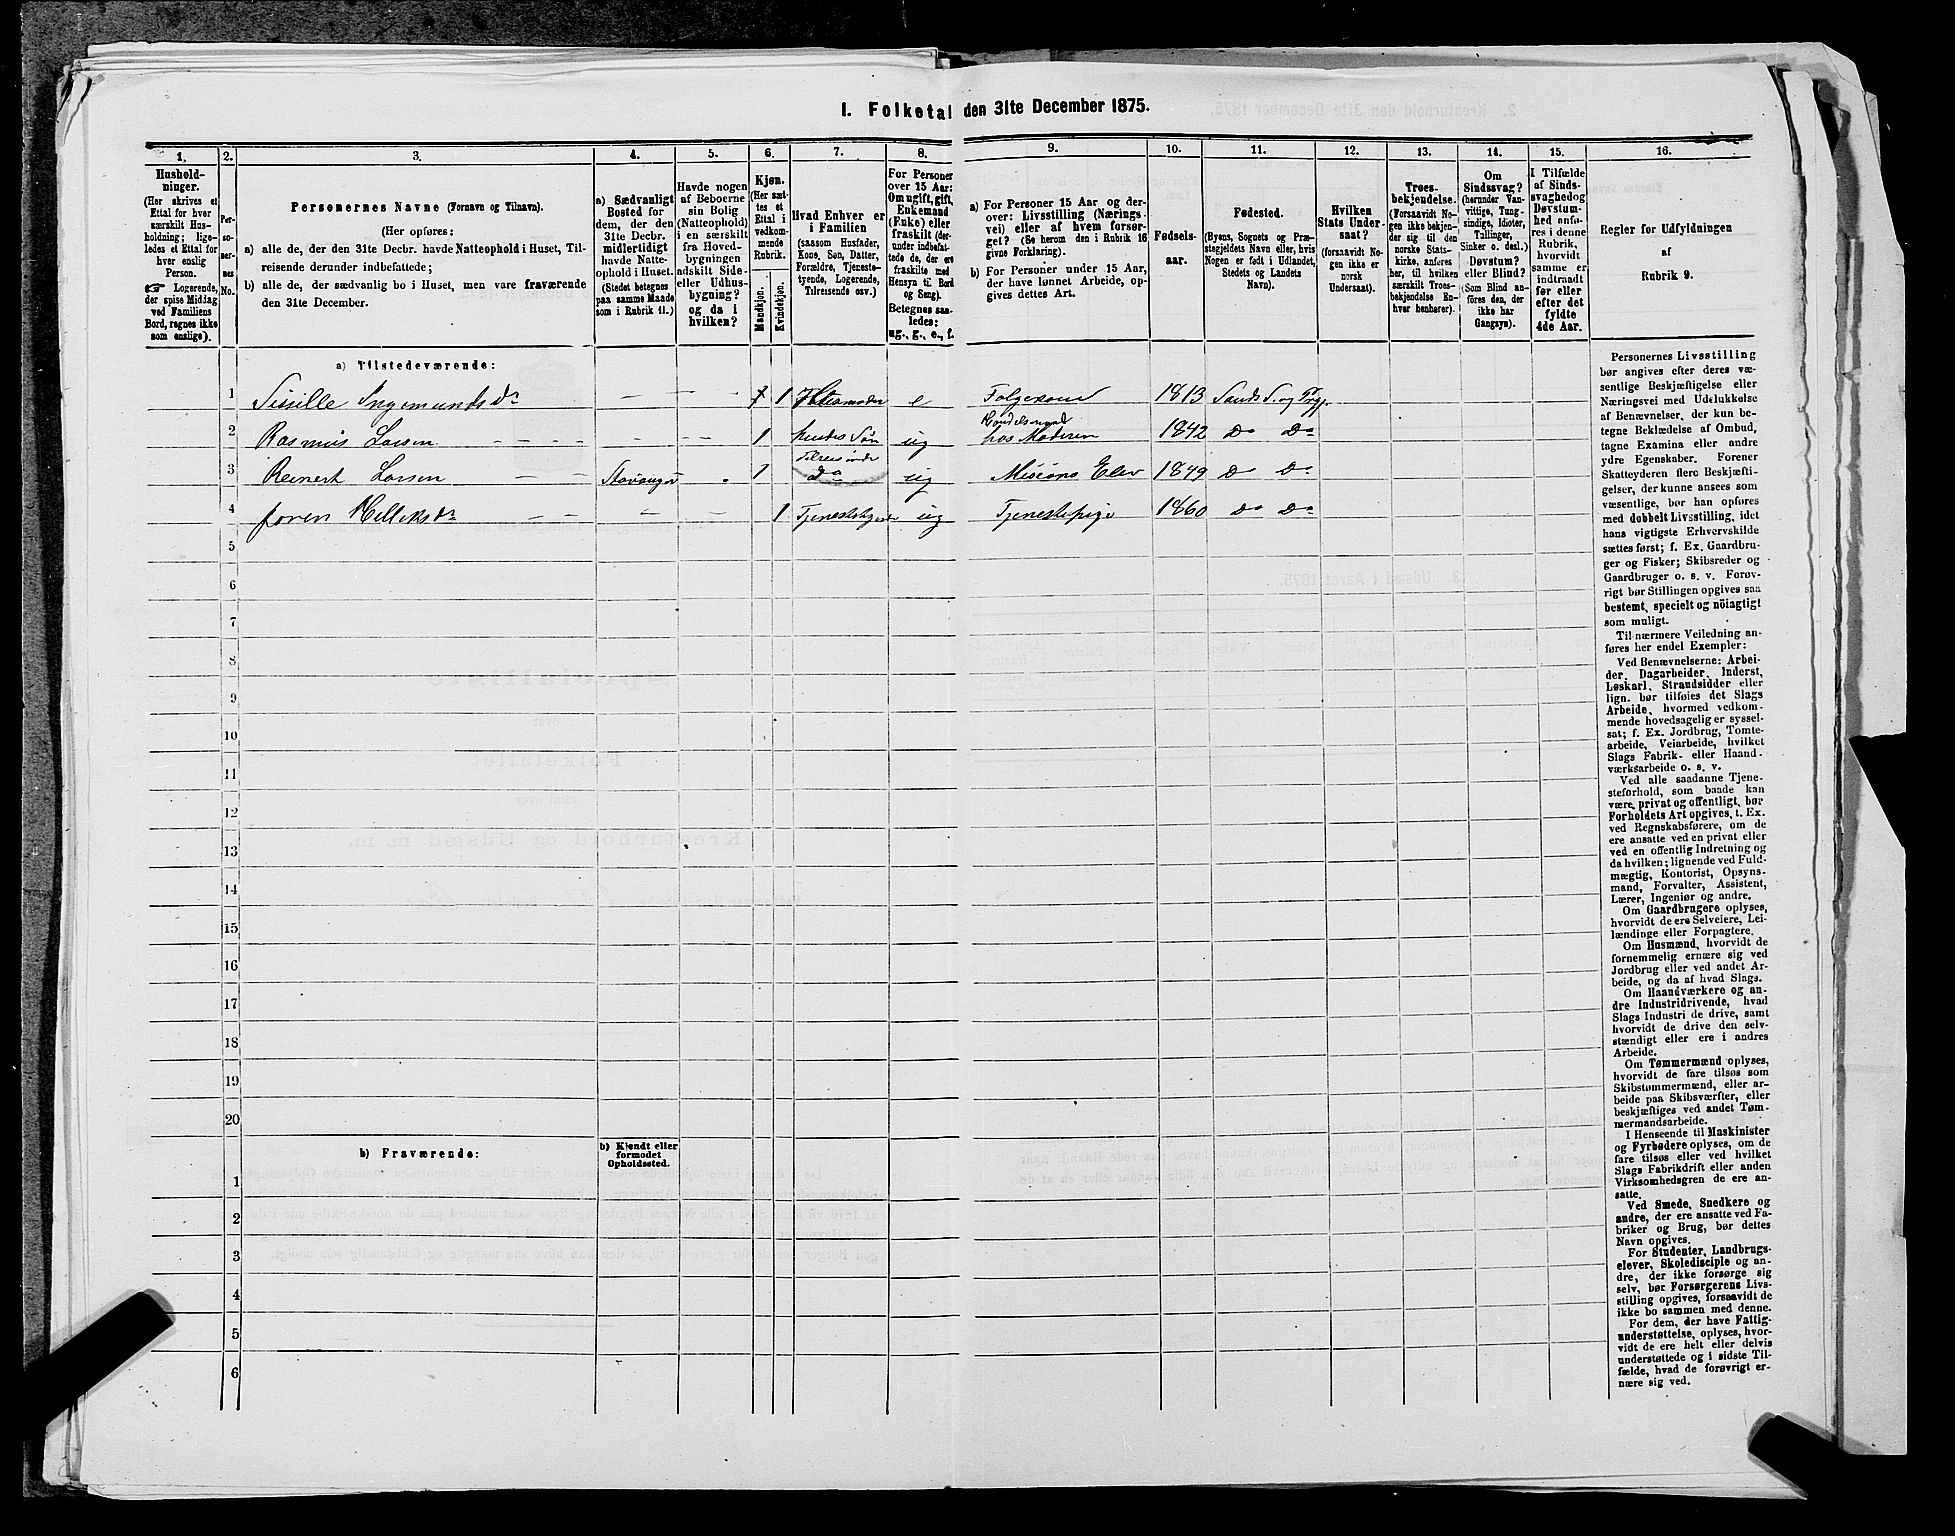 1. Folketal den 31te December 1875.
1. 2. 3. 4. 5. 6. 7. 8. 9. 10. 11. 12. 13. 14. 15. 16.
Hushold-
ninger.
(Her skrives et
Ettal for hver
særskilt Hus-
holdning; lige-
ledes et Ettal for
hver enslig
Person.
☞ Logerende,
der spise Middag
ved Familiens
Bord, regnes ikke
som enslige).
Per-
so-
ner-
nes
No.
Personernes Navne (Fornavn og Tilnavn).
(Her opføres:
a) alle de, der den 31te Decbr. havde Natteophold i Huset, Til-
reisende derunder indbefattede;
b) alle de, der sædvanlig bo i Huset, men vare fraværende
den 31te December.
a) Sædvanligt
Bosted for
dem, der den
31te Decbr.
midlertidigt
havde Natte-
ophold i Huset.
(Stedet betegnes
paa samme Maade
som i Rubrik 11.)
Havde nogen
af Beboerne
sin Bolig
(Natteophold)
i en særskilt
fra Hoved-
bygningen
adskilt Side-
eller Udhus-
bygning?
og da i
hvilken?
Kjøn.
(Her sæt-
tes et
Ettal i
vedkom-
mende
Rubrik.
Mandkjøn.
Kvindekjøn.
Hvad Enhver er
i Familien
(saasom Husfader,
Kone, Søn, Datter,
Forældre, Tjeneste-
tyende, Logerende,
Tilreisende osv.)
For Personer
over 15 Aar:
Om ugift, gift,
Enkemand
(Enke) eller
fraskilt (der-
under indbefat-
tede de, der ere
fraskilte med
Hensyn til Bord
og Seng).
Betegnes saa-
ledes:
ug., g., e., f.
a) For Personer 15 Aar og der-
over: Livsstilling (Nærings-
vei) eller af hvem forsør-
get? (Se herom den i Rubrik 16
givne Forklaring).
b) For Personer under 15 Aar,
der have lønnet Arbeide, op-
gives dettes Art.
Fødsels-
aar.
Fødested.
(Byens, Sognets og Præ-
stegjeldets Navn eller, hvis
Nogen er født i Udlandet,
Stedets og Landets
Navn).
Hvilken
Stats Under-
saat?
(forsaavidt No-
gen ikke er
norsk
Undersaat).
Troes-
bekjendelse.
(Forsaavidt No-
gen ikke bekjen-
der sig til den
norske Stats-
kirke, anføres
her, til hvilken
særskilt Troes-
bekjendelse En-
hver henhører).
Om
Sindssvag?
(herunder Van-
vittige, Tung-
sindige, Idioter,
Tullinger,
Sinker o. desl.)
Døvstum?
eller Blind?
(Som Blind an-
føres den, der
ikke har
Gangsyn).
I Tilfælde
af Sinds-
svaghed og
Døvstum-
hed anfø-
res i denne
Rubrik,
hvorvidt
samme er
indtraadt
før eller
efter det
fyldte
4de Aar.
Regler for Udfyldningen
af
Rubrik 9.
a) Tilstedeværende:
1 Sissille Ingemundsdr — — — 1 e Folgekone 1813 Sands S. og Prgj.
2 Rasmus Larsen — — — — — 1 hendes Søn ug Handelsmand hos Moderen 1842 Do Do
3 Reinert Larsen — — Stavanger 1 Tilreisende Do ug Misions Elev 1849 Do Do
4 Joren Helliksdr — — — — 1 ug Tjenestepige 1860 Do Do
5
6
7
8
9
10
11
12
13
14
15
16
17
18
19
20
b) Fraværende:
b) Kjendt eller
formodet
Opholdssted.
1
2
3
4
5
6
Personernes Livsstilling
bør angives efter deres væ-
sentlige Beskjæftigelse eller
Næringsvei med Udelukkelse
af Benævnelser, der kun be-
tegne Beklædelse af Ombud,
tagne Examina eller andre
ydre Egenskaber. Forener
Skatteyderen flere Beskjæfti-
gelser, der kunne ansees som
væsentlige, bør han opføres
med dobbelt Livsstilling, idet
hans vigtigste Erhvervskilde
sættes først; f. Ex. Gaardbru-
ger og Fisker; Skibsreder og
Gaardbruger o. s. v. Forøv-
rigt bør Stillingen opgives saa
bestemt, specielt og nöiagtigt
som muligt.
Til nærmere Veiledning an-
føres her endel Exempler:
Ved Benævnelserne: Arbei-
der, Dagarbeider, Inderst,
Løskarl, Strandsidder eller
lign. bør tilføies det Slags
Arbeide, hvormed vedkom-
mende hovedsagelig er syssel-
sat; f. Ex. Jordbrug, Tomte-
arbeide, Veiarbeide, hvilket
Slags Fabrik- eller Haand-
værksarbeide o. s. v.
Ved alle saadanne Tjene-
steforhold, som baade kan
være privat og offentligt, bør
Forholdets Art opgives, t. Ex.
ved Regnskabsførere, om de
ere ansatte ved en privat eller
ved en offentlig Indretning og
da hvilken; lignende ved Fuld-
mægtig, Kontorist, Opsyns-
mand, Forvalter, Assistent,
Lærer, Ingeniør og andre.
Om Gaardbrugere oplyses,
hvorvidt de ere Selveiere, Lei-
lændinge eller Forpagtere.
Om Husmænd, hvorvidt de
fornemmelig ernære sig ved
Jordbrug eller ved andet Ar-
beide, og da af hvad Slags.
Om Haandværkere og an-
dre Industridrivende, hvad
Slags Industri de drive, samt
hvorvidt de drive den selv-
stændigt eller ere i andres
Arbeide.
Om Tømmermænd oplyses,
hvorvidt de fare tilsøs som
Skibstømmermænd, eller ar-
beide paa Skibsværfter, eller
beskjæftiges ved andet Tøm-
mermandsarbeide.
I Henseende til Maskinister
og Fyrbødere oplyses, om de
fare tilsøs eller ved hvilket
Slags Fabrikdrift eller anden
Virksomhedsgren de ere an-
satte.
Ved Smede, Snedkere og
andre, der ere ansatte ved Fa-
briker og Brug, bør dettes
Navn opgives.
For Studenter, Landbrugs-
elever, Skoledisciple og an-
dre, der ikke forsørge sig
selv, bør Forsørgerens Livs-
stilling opgives, forsaavidt de
ikke bo sammen med denne.
For dem, der have Fattig-
understøttelse, oplyses, hvor-
vidt de ere helt eller delvis
understøttede og i sidste Til-
fælde, hvad de forøvrigt er-
nære sig ved.